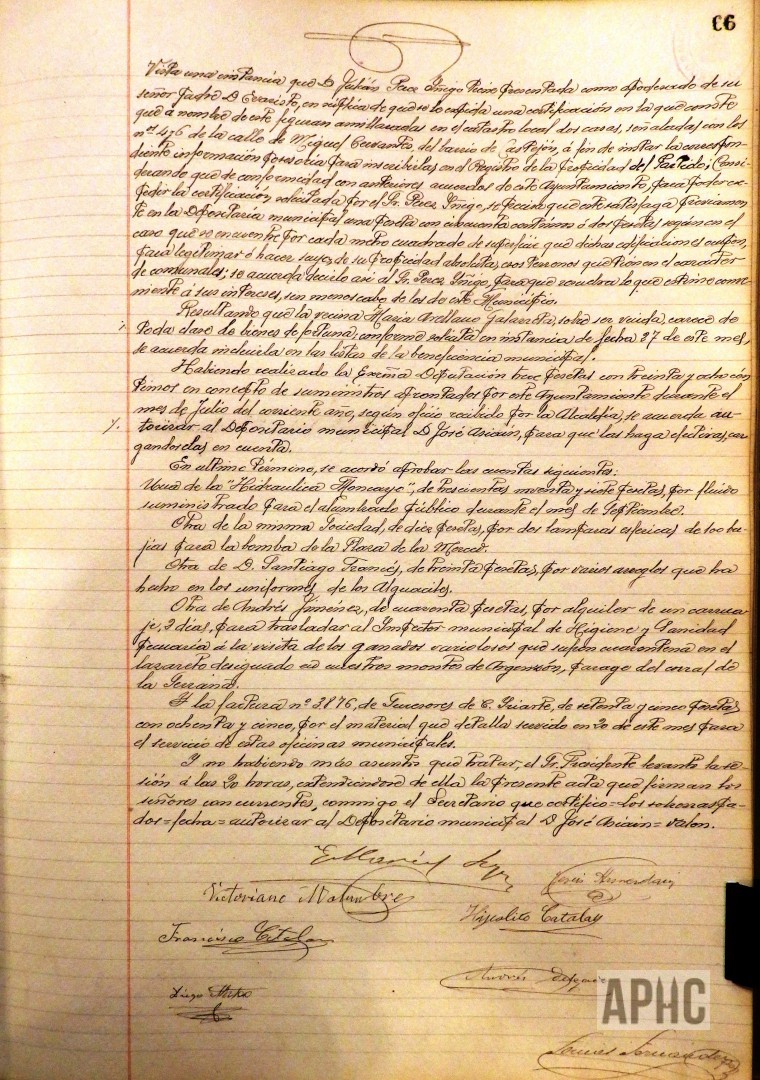 66
Vista una instancia que D. Julián Perez Iñigo tiene presentada como apoderado de su
señor padre D. Evaristo, en súplica de que se le expida una certificación en la que conste
que a nombre de este figuran amillaradas en el catastro local dos casas, señaladas con los
nos 4 y 6 de la calle de Miguel Cervantes, del barrio de Castejón, á fin de instar la correspon-
diente información posesoria para inscribirlas en el Registro de la Propiedad del Partido; Consi-
derando que de conformidad con anteriores acuerdos de este Ayuntamiento, para poder ex-
pedir la certificación solicitada por el Sr. Perez Iñigo, se precisa que este satisfaga previamen-
te en la Depositaria municipal una peseta con cincuenta céntimos ó dos pesetas según en el
caso que se encuentre por cada metro cuadrado de superficie que dichas edificaciones ocupen,
para legitimar ó hacer suyos de su propiedad absoluta, esos terrenos que tienen el caracter
de comunales; se acuerda decirlo asi al Sr. Perez Iñigo, para que resuelva lo que estime conve-
niente á sus intereses, sin menoscabo de los de este Municipio.
Resultando que la vecina Maria Arellano Galarreta, sobre ser viuda, carece de
toda clase de bienes de fortuna; conforme solicita en instancia de fecha 27 de este mes,
se acuerda incluirla en las listas de la beneficencia municipal.
Habiendo realizado la Excma Diputación trece pesetas con treinta y ocho cén-
timos en concepto de suministros aprontados por este Ayuntamiento durante el
mes de Julio del corriente año, según oficio recibido por la Alcaldía, se acuerda au-
torizar al Depositario municipal D. José Asiain, para que las haga efectivas, car-
gandoselas en cuenta.
En ultimo término, se acordó aprobar las cuentas siguientes:
Una de la "Hidraulica Moncayo", de trescientas noventa y siete pesetas, por fluido
suministrado para el alumbrado público durante el mes de Septiembre.
Otra de la misma Sociedad, de diez pesetas, por dos lamparas esfericas de 100 bu-
jias para la bomba de la Plaza de la Merced.
Otra de D. Santiago Francés, de treinta pesetas, por varios arreglos que ha
hecho en los uniformes de los Alguaciles.
Otra de Andrés Jiménez, de cuarenta pesetas, por alquiler de un carrua-
je, 2 dias, para trasladar al Inspector municipal de Higiene y Sanidad
pecuaria á la visita de los ganados variolosos que sufren cuarentena en el
lazareto designado en nuestros montes de Argenzón, parage del corral de
la
Y la factura nº 2876, de Sucesores de C. Iriarte, de setenta y cinco pesetas
con ochenta y cinco, por el material que detalla servido en 20 de este mes para
el servicio de estas oficinas municipales.
Y no habiendo más asuntos que tratar, el Sr. Presidente levantó la se-
sión á las 20 horas, extendiéndose de ella la presente acta que firman los
señores concurrentes, conmigo el Secretario que certifico = Los sobrerraspa-
dos = fecha = autorizar al Depositario municipal D. José Asiain = valen.
Victoriano
Hipolito Catalan
Francisco Catalan
Andrés
Diego
APHC